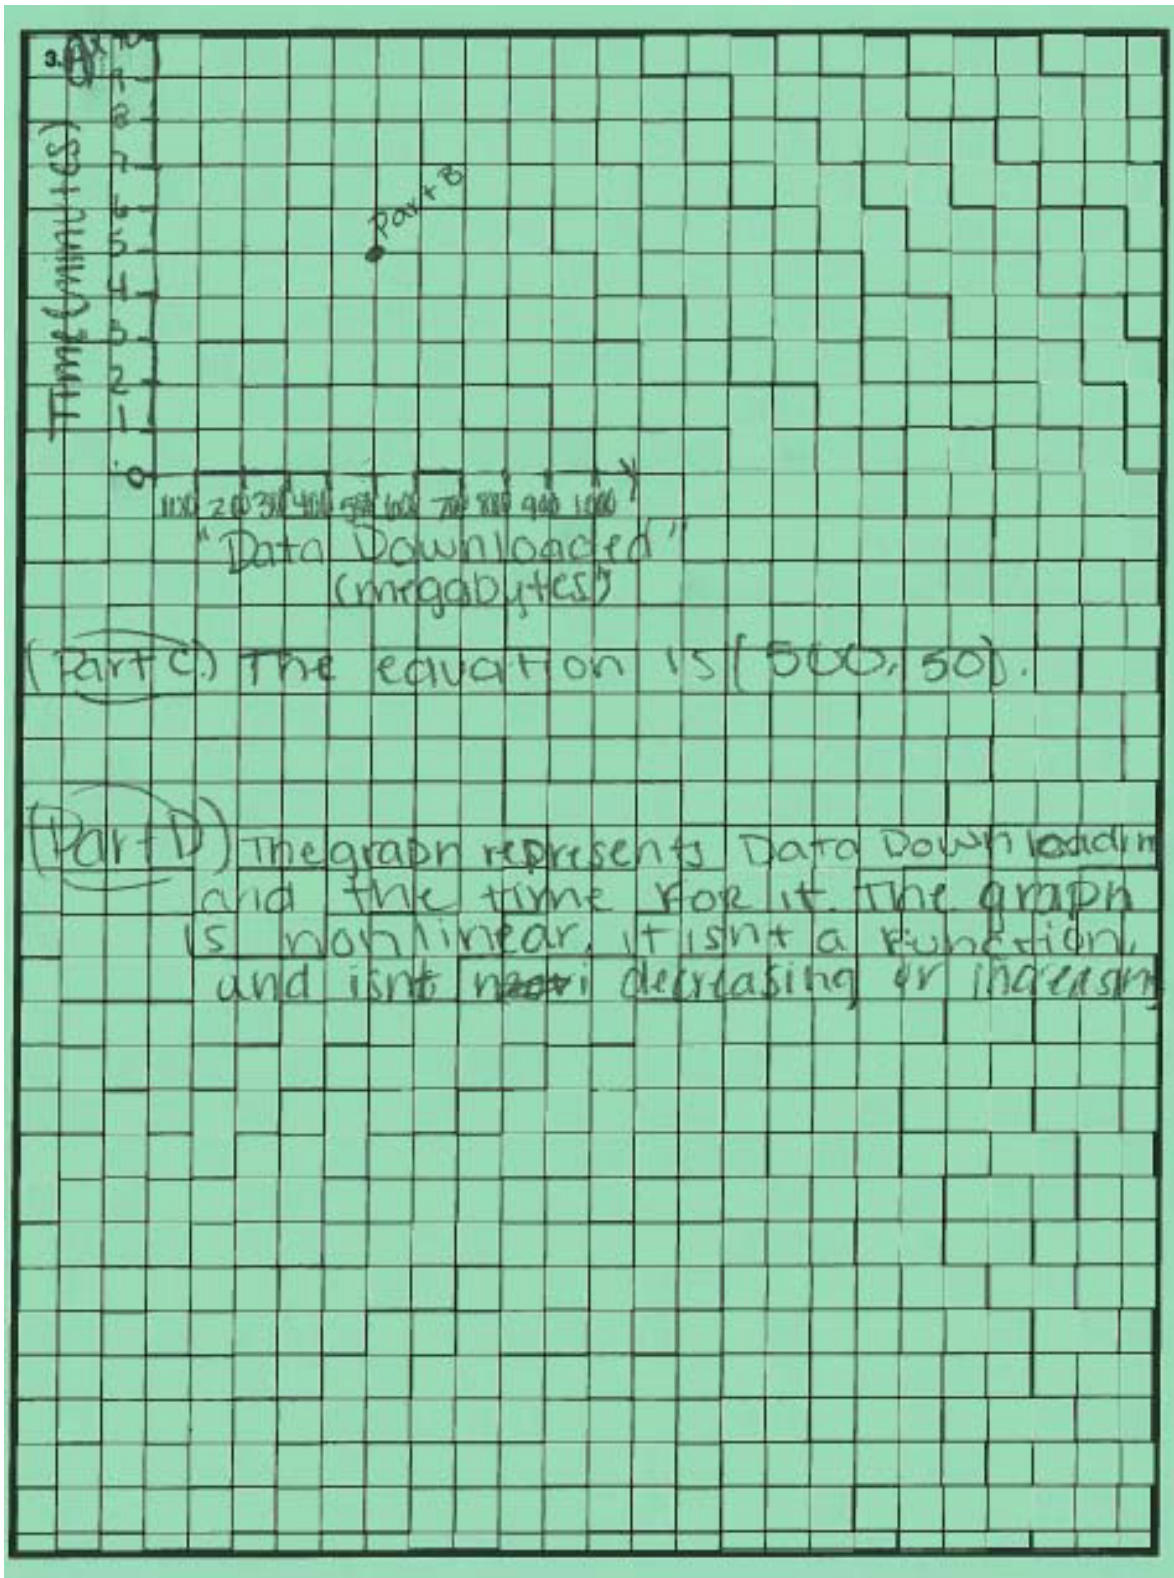 3.
9
8
7
6
5
4
3
2
1
0
Time (minutes)
Part B
100 200 300 400 500 600 700 800 900 1000 y
"Data Downloaded"
(megabytes)
(Part C.) The equation is (500, 50).
(Part D) The graph represents Data Downloadin
and the time for it. The graph
is nonlinear. it isnt a function,
and isnt decreasing or increasing